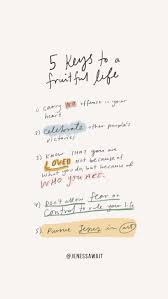 5 keys to a
fruitful life
1) carry NO offense in your
heart
2) celebrate other people's
victories
3) know that you are
LOVED not because of
what you do, but because of
WHO YOU ARE.
4) Don't allow fear or
control to rule your life
5) Pursue Jesus in
@JENESSAWAIT